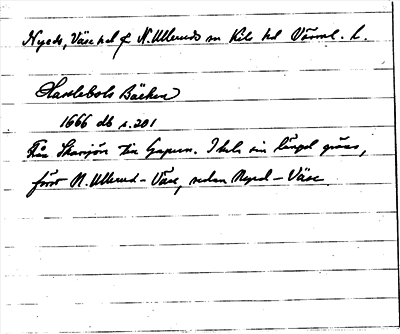 Nyeds, Väse hd f N. Ulleruds sn Kils hd Värml. l.
Hasslebols Bäcken
1666 db s. 201
Från Skarsjön till Gapern. I hela sin längd gräns,
först N. Ullerud – Väse, sedan Nyed – Väse